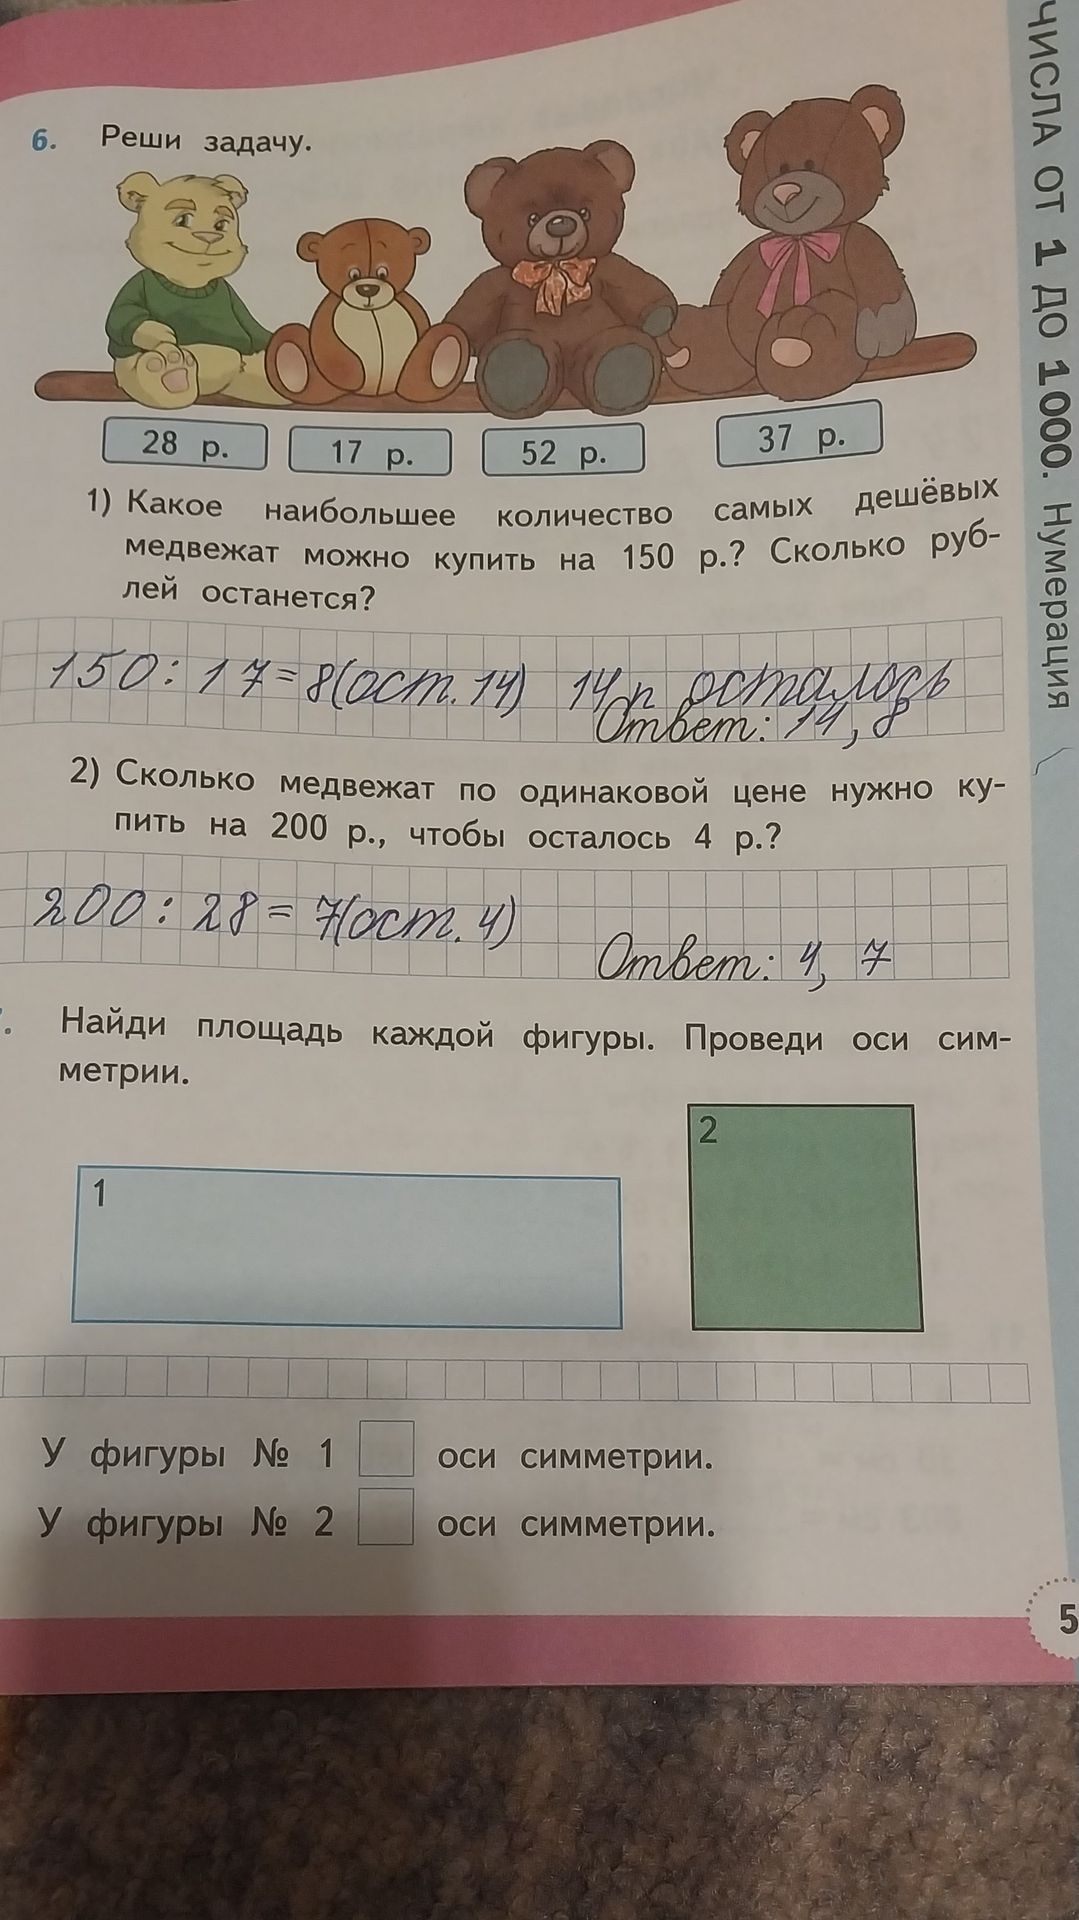 ЧИСЛА ОТ 1 ДО 1000. Нумерация
6. Реши задачу.
28 р.
17 р.
52 р.
37 р.
1) Какое наибольшее количество самых дешёвых
медвежат можно купить на 150 р.? Сколько руб-
лей останется?
150 : 17 = 8(ост. 14) 14 р осталось
Ответ: 14, 8
2) Сколько медвежат по одинаковой цене нужно ку-
пить на 200 р., чтобы осталось 4 р.?
200 : 28 = 7(ост. 4)
Ответ: 4, 7
. Найди площадь каждой фигуры. Проведи оси сим-
метрии.
1
2
У фигуры № 1 оси симметрии.
У фигуры № 2 оси симметрии.
5